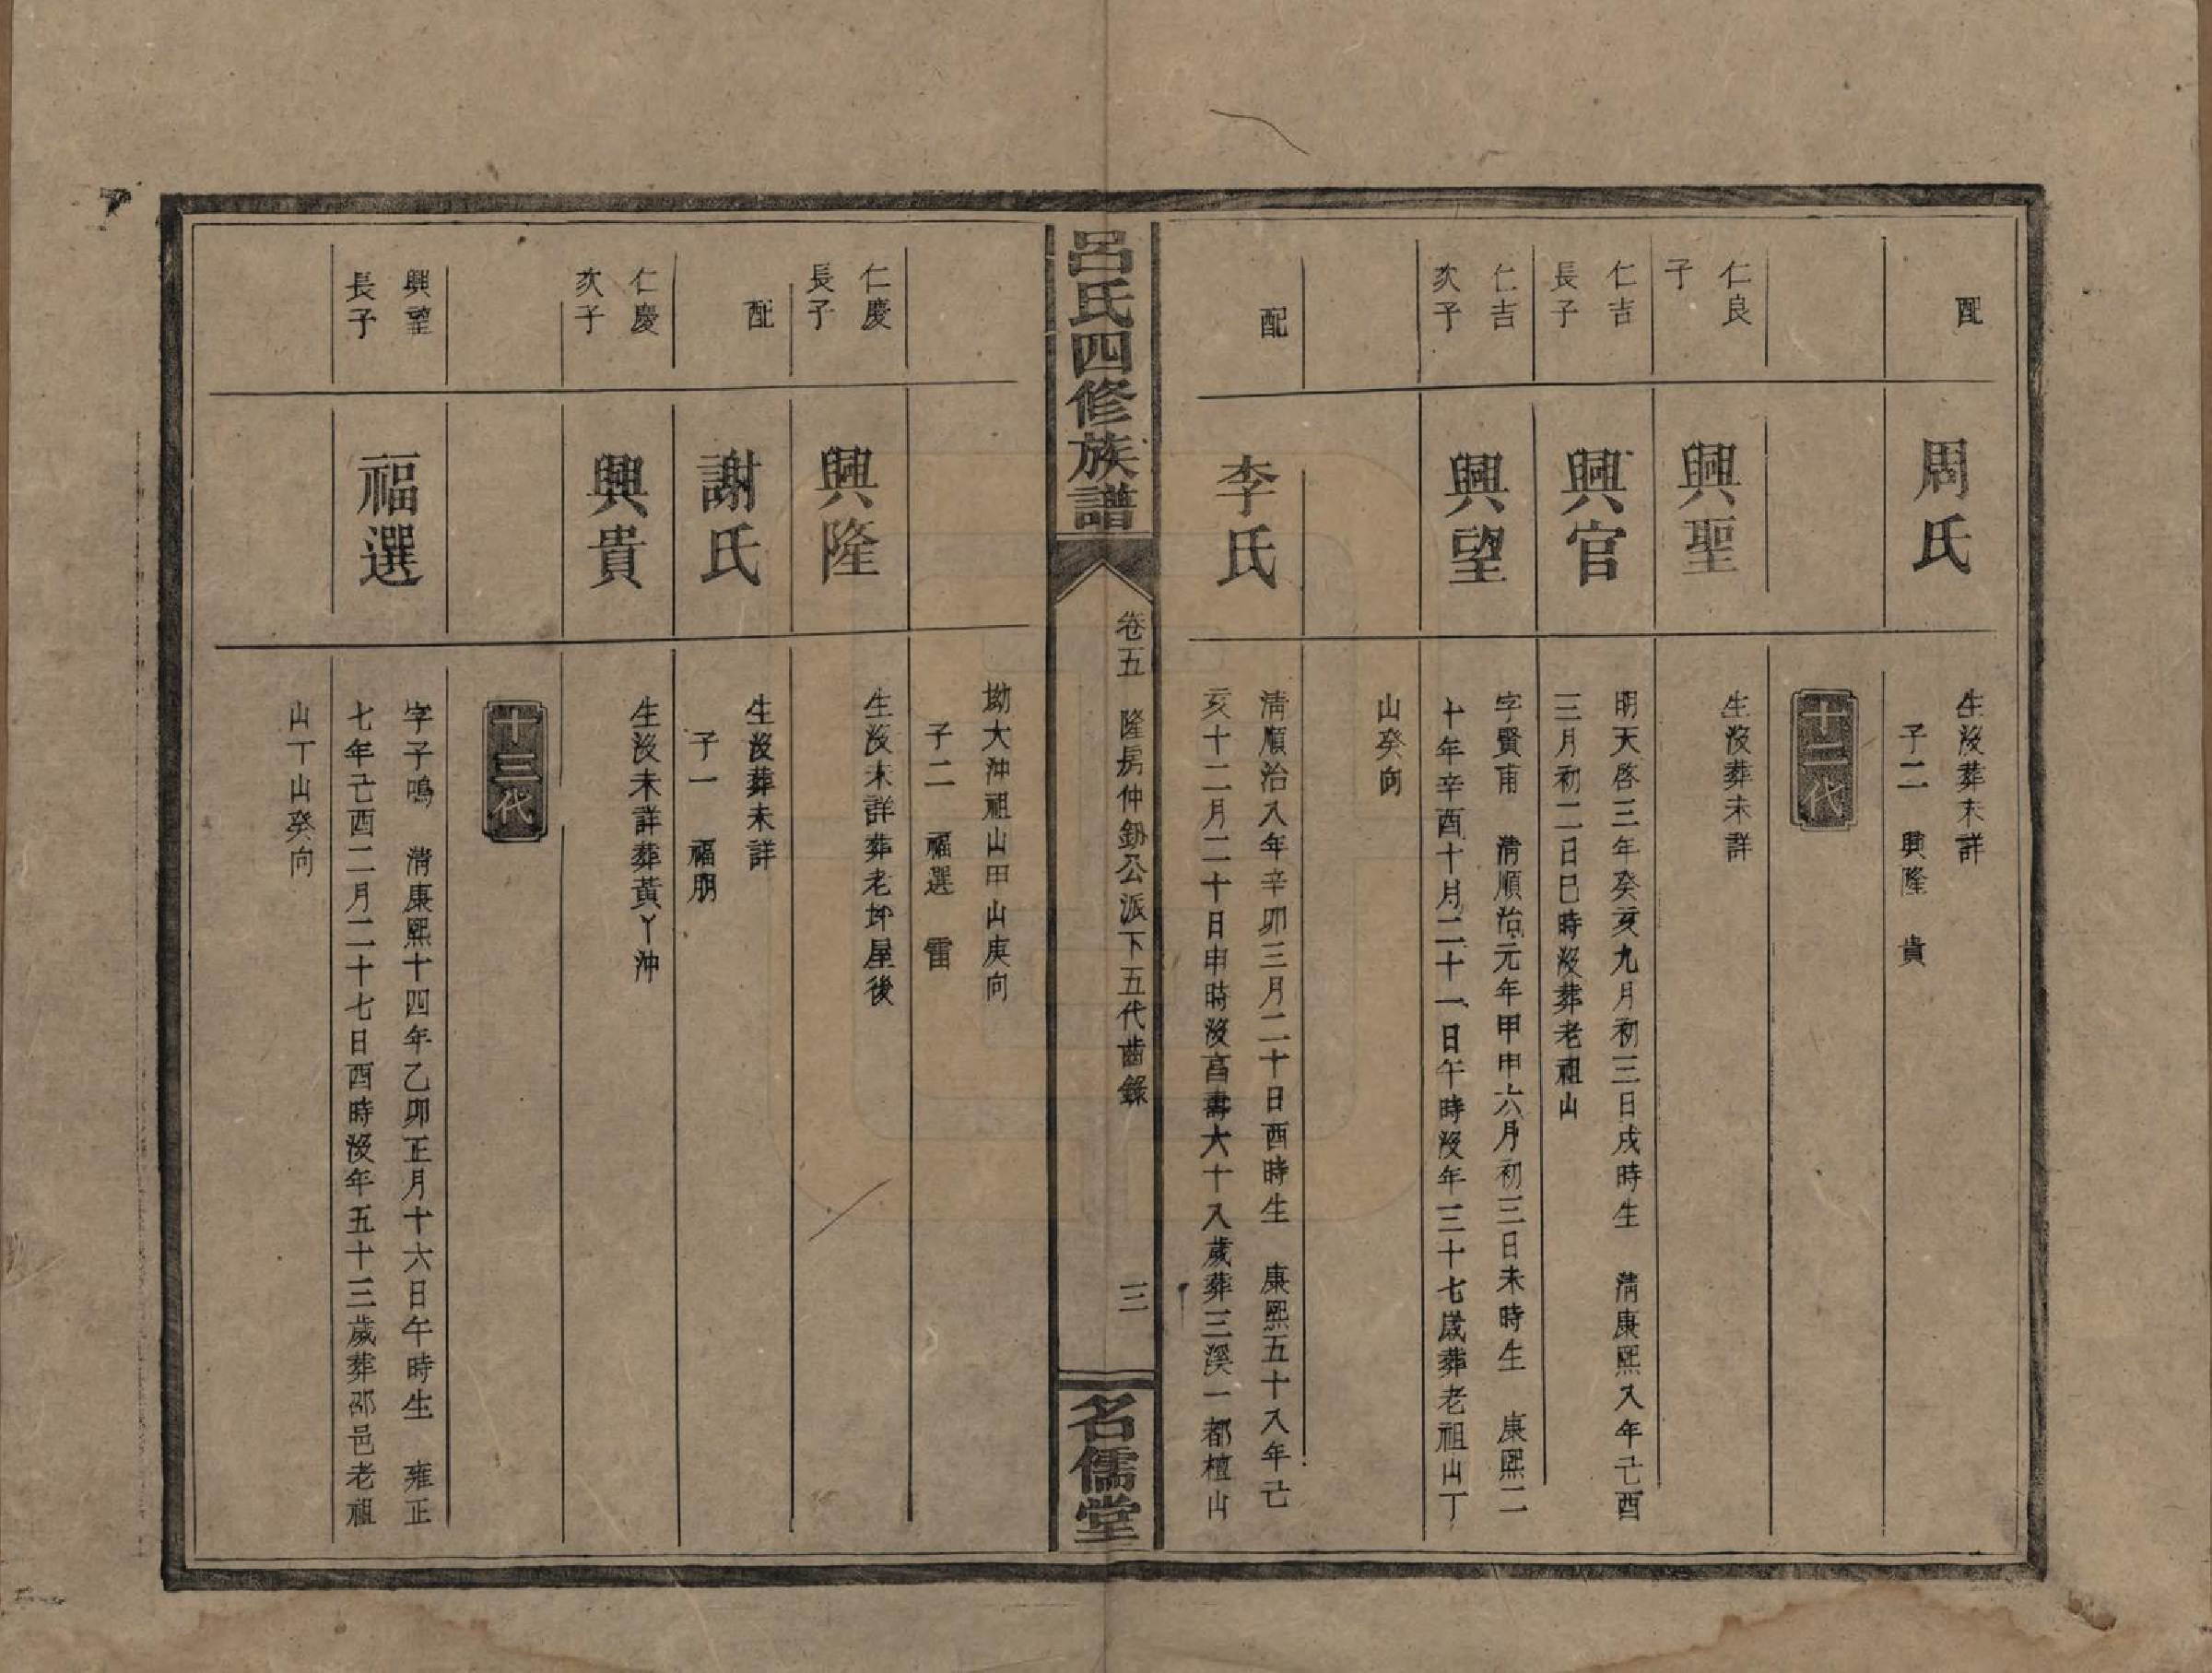 配
周氏
生沒葬未詳
子二　興隆　貴
十二代
仁良
子
興聖
生沒葬未詳
仁吉
長子
興官
明天啓三年癸亥九月初三日戌時生　清康熙八年己酉
三月初二日巳時沒葬老祖山
仁吉
次子
興望
字賢甫　清順治元年甲申六月初三日未時生　康熙二
十年辛酉十月二十一日午時沒年三十七歲葬老祖山丁
山癸向
配
李氏
清順治八年辛卯三月二十日酉時生　康熙五十八年己
亥十二月二十日申時沒高壽六十八歲葬三溪一都檀山
呂氏四修族譜
卷五　隆房仲釗公派下五代齒錄
三
名儒堂
坳大沖祖山甲山庚向
子二　福選　雷
仁慶
長子
興隆
生沒未詳葬老坤屋後
配
謝氏
生沒葬未詳
子一　福朋
仁慶
次子
興貴
生沒未詳葬黃丫沖
十三代
興望
長子
福選
字子鳴　清康熙十四年乙卯正月十六日午時生　雍正
七年己酉二月二十七日酉時沒年五十三歲葬邵邑老祖
山丁山癸向